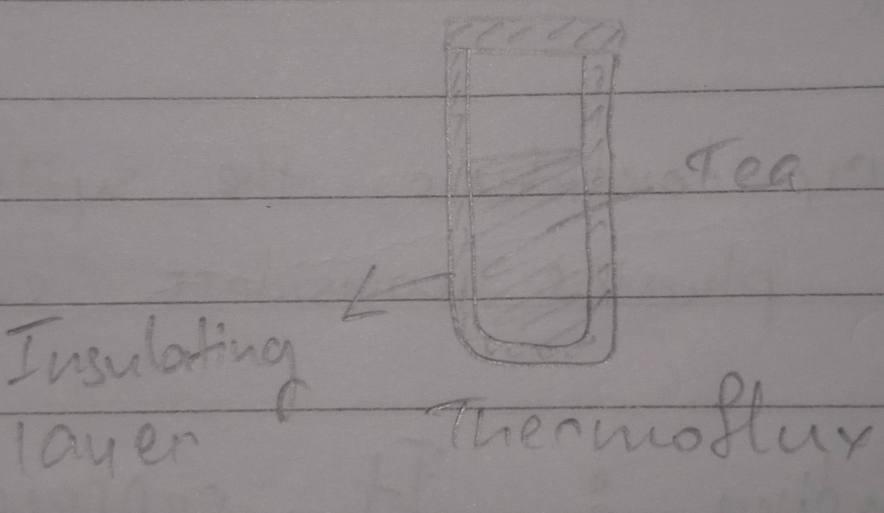 Tea
Insulating
layer
Thermoflux